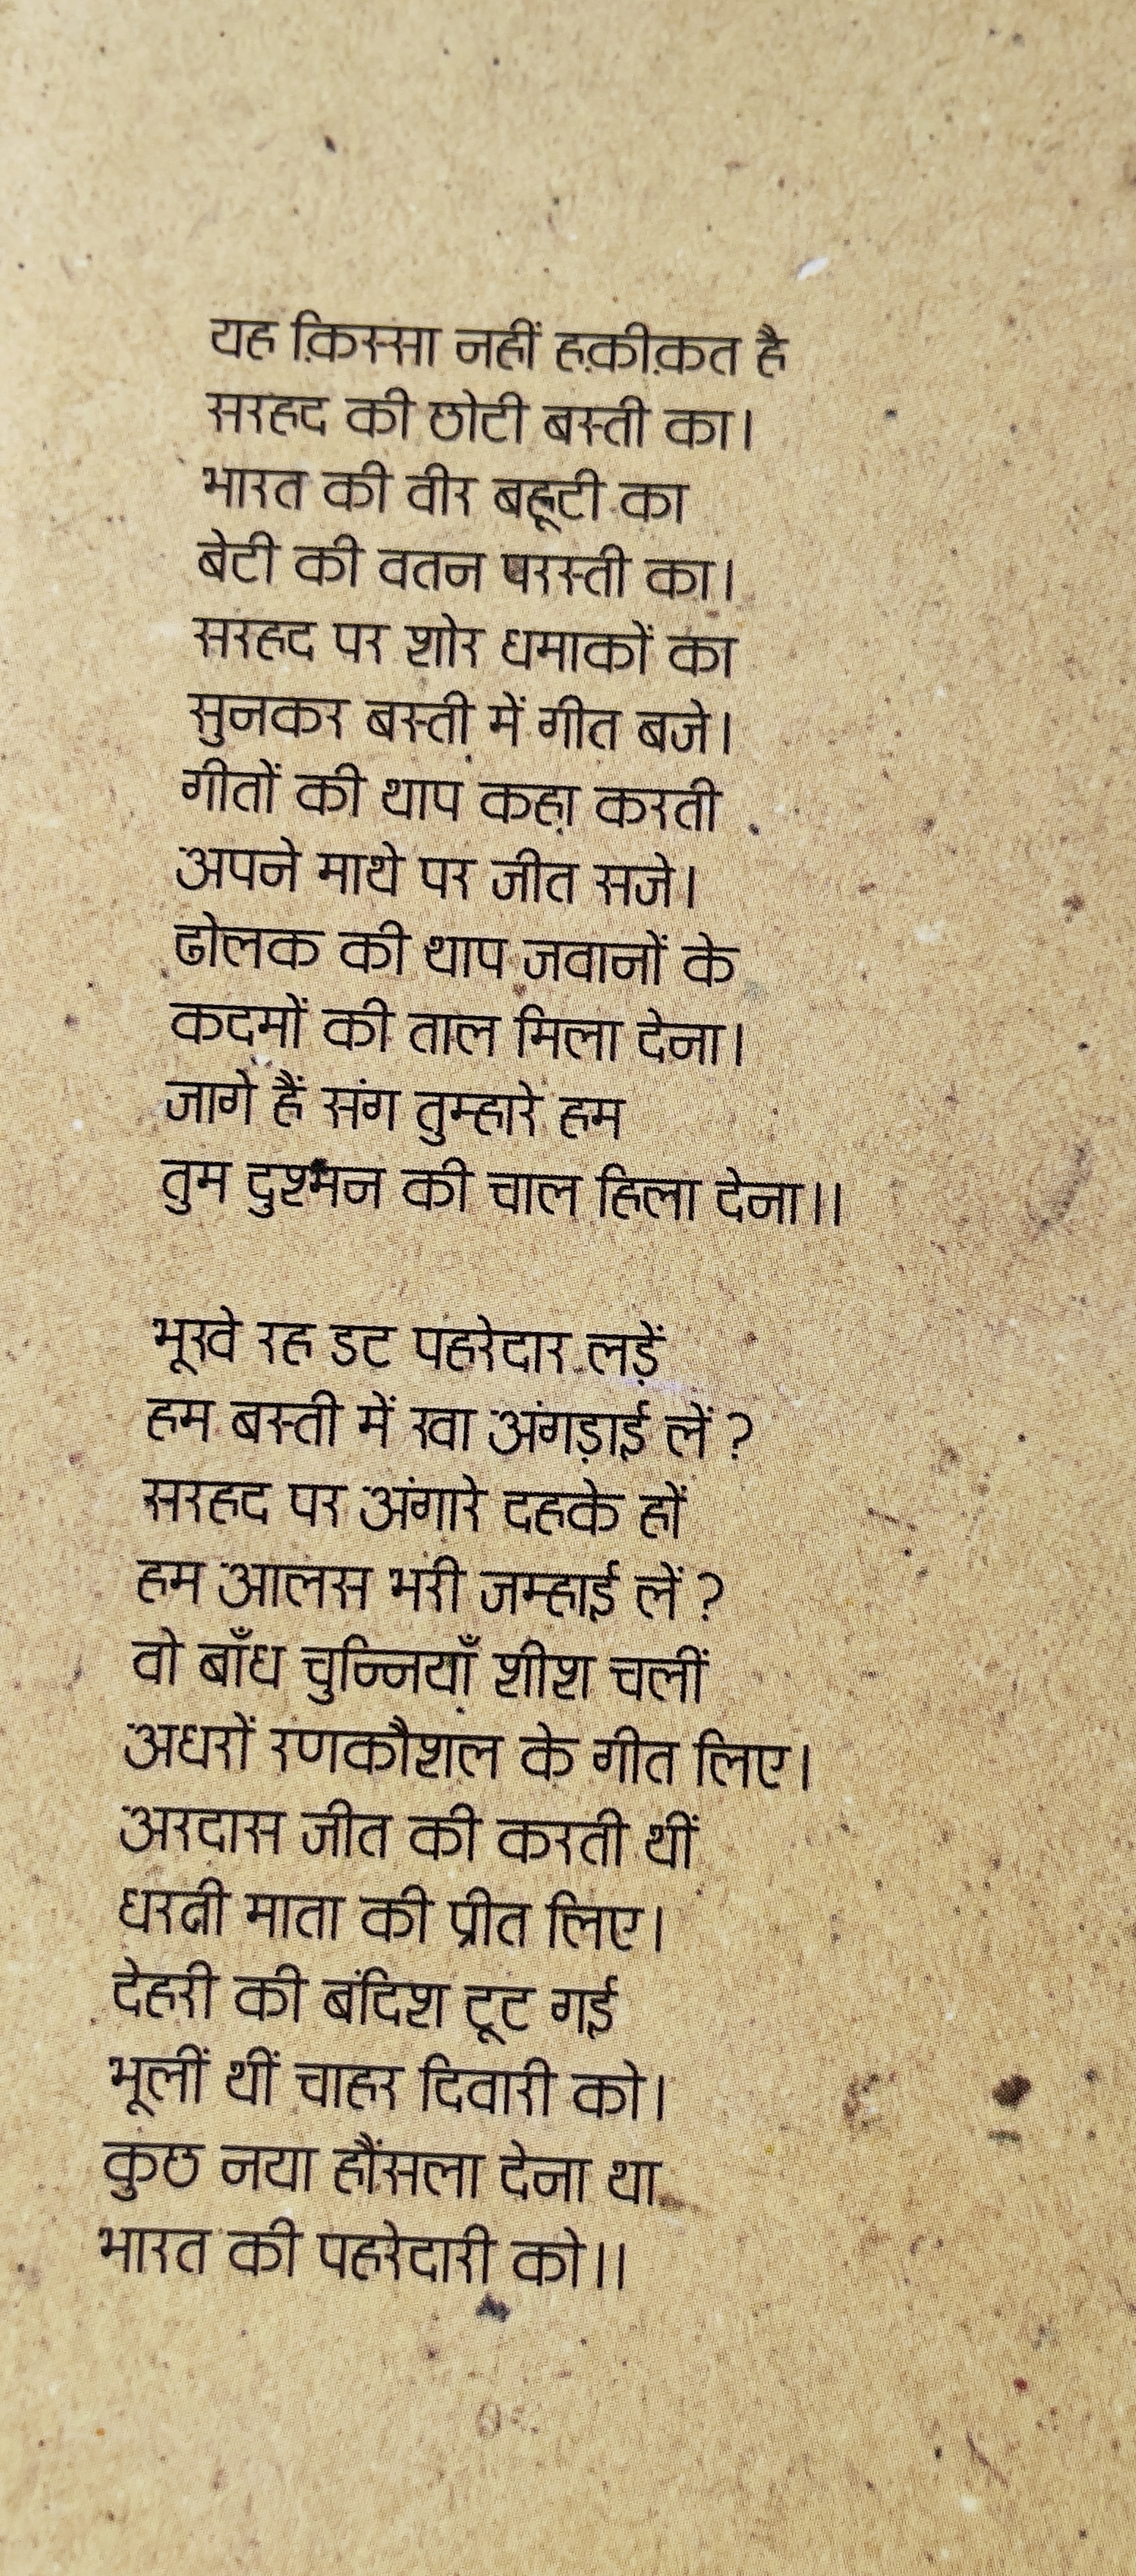 यह क़िस्सा नहीं हक़ीक़त है
सरहद की छोटी बस्ती का।
भारत की वीर बहूटी का
बेटी की वतन परस्ती का।
सरहद पर शोर धमाकों का
सुनकर बस्ती में गीत बजे।
गीतों की थाप कहा करती
अपने माथे पर जीत सजे।
ढोलक की थाप जवानों के
कदमों की ताल मिला देना।
जागे हैं संग तुम्हारे हम
तुम दुश्मन की चाल हिला देना।।
भूखे रह डट पहरेदार लड़ें
हम बस्ती में खा अंगड़ाई लें ?
सरहद पर अंगारे दहके हों
हम आलस भरी जम्हाई लें ?
वो बाँध चुन्नियाँ शीश चलीं
अधरों रणकौशल के गीत लिए।
अरदास जीत की करती थीं
धरती माता की प्रीत लिए।
देहरी की बंदिश टूट गई
भूलीं थीं चाहर दिवारी को।
कुछ नया हौंसला देना था
भारत की पहरेदारी को।।